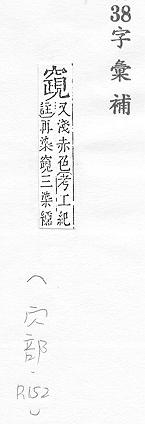 38字彙補
竀
又淺赤色考工紀
註再染竀三染纁
(穴部·P.152)